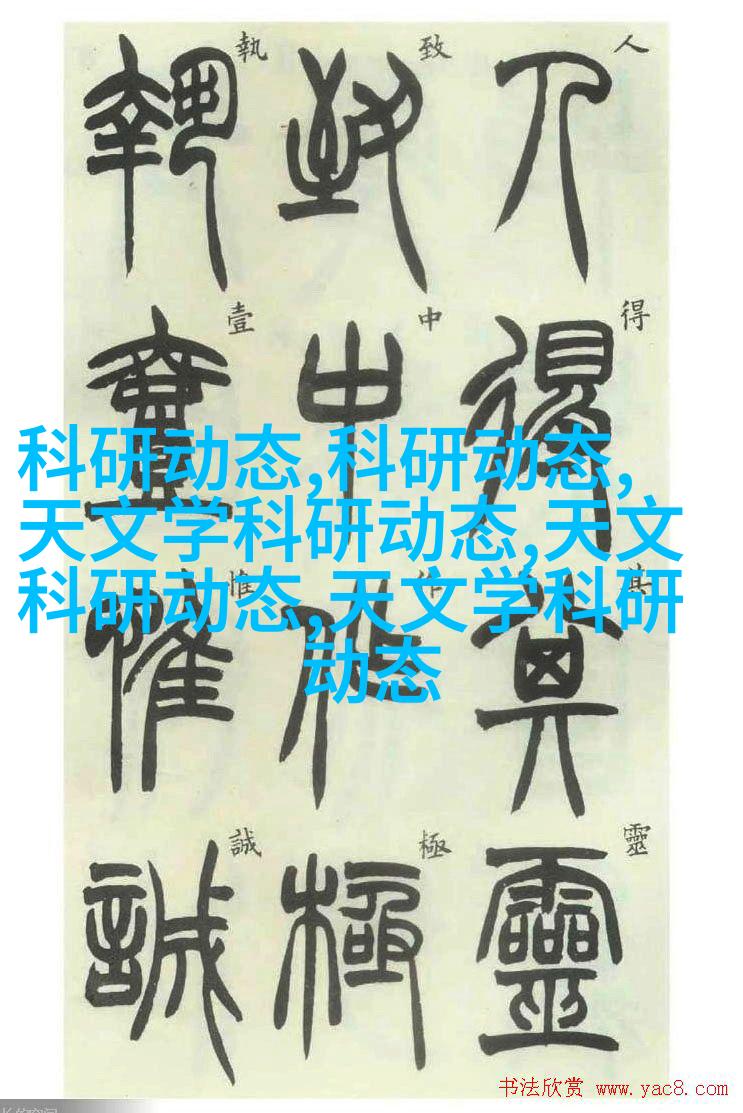 人得其靈
致中作極
執壹惟誠
人
得
其
靈
致
中
作
極
執
壹
惟
誠
科研动态,科研动态,
天文学科研动态,天文
科研动态,天文学科研
动态
书法欣赏 www.yac8.com